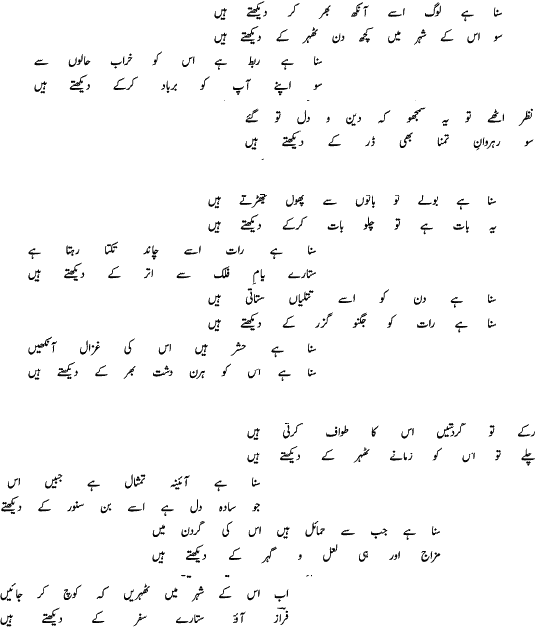 سنا ہے لوگ اسے آنکھ بھر کر دیکھتے ہیں
سو اس کے شہر میں کچھ دن ٹھہر کے دیکھتے ہیں
سنا ہے ربط ہے اس کو خراب حالوں سے
سو اپنے آپ کو برباد کرکے دیکھتے ہیں
نظر اٹھے تو یہ سمجھو کہ دین و دل تو گئے
سو رہروانِ تمنا بھی ڈر کے دیکھتے ہیں
سنا ہے بولے تو باتوں سے پھول جھڑتے ہیں
یہ بات ہے تو چلو بات کرکے دیکھتے ہیں
سنا ہے رات اسے چاند تکتا رہتا ہے
ستارے بامِ فلک سے اتر کے دیکھتے ہیں
سنا ہے دن کو اسے تتلیاں ستاتی ہیں
سنا ہے رات کو جگنو گزر کے دیکھتے ہیں
سنا ہے حشر ہیں اس کی غزال آنکھیں
سنا ہے اس کو ہرن دشت بھر کے دیکھتے ہیں
رکے تو گردشیں اس کا طواف کرتی ہیں
چلے تو اس کو زمانے ٹھہر کے دیکھتے ہیں
سنا ہے آئینہ تمثال ہے جبیں اس
جو سادہ دل ہے اسے بن سنور کے دیکھتے
سنا ہے جب سے حمائل ہیں اس کی گردن میں
مزاج اور ہی لعل و گہر کے دیکھتے ہیں
اب اس کے شہر میں ٹھہریں کہ کوچ کر جائیں
فراز آؤ ستارے سفر کے دیکھتے ہیں